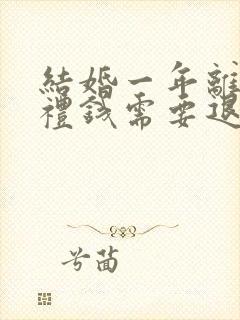 結婚一年離
禮錢需要退